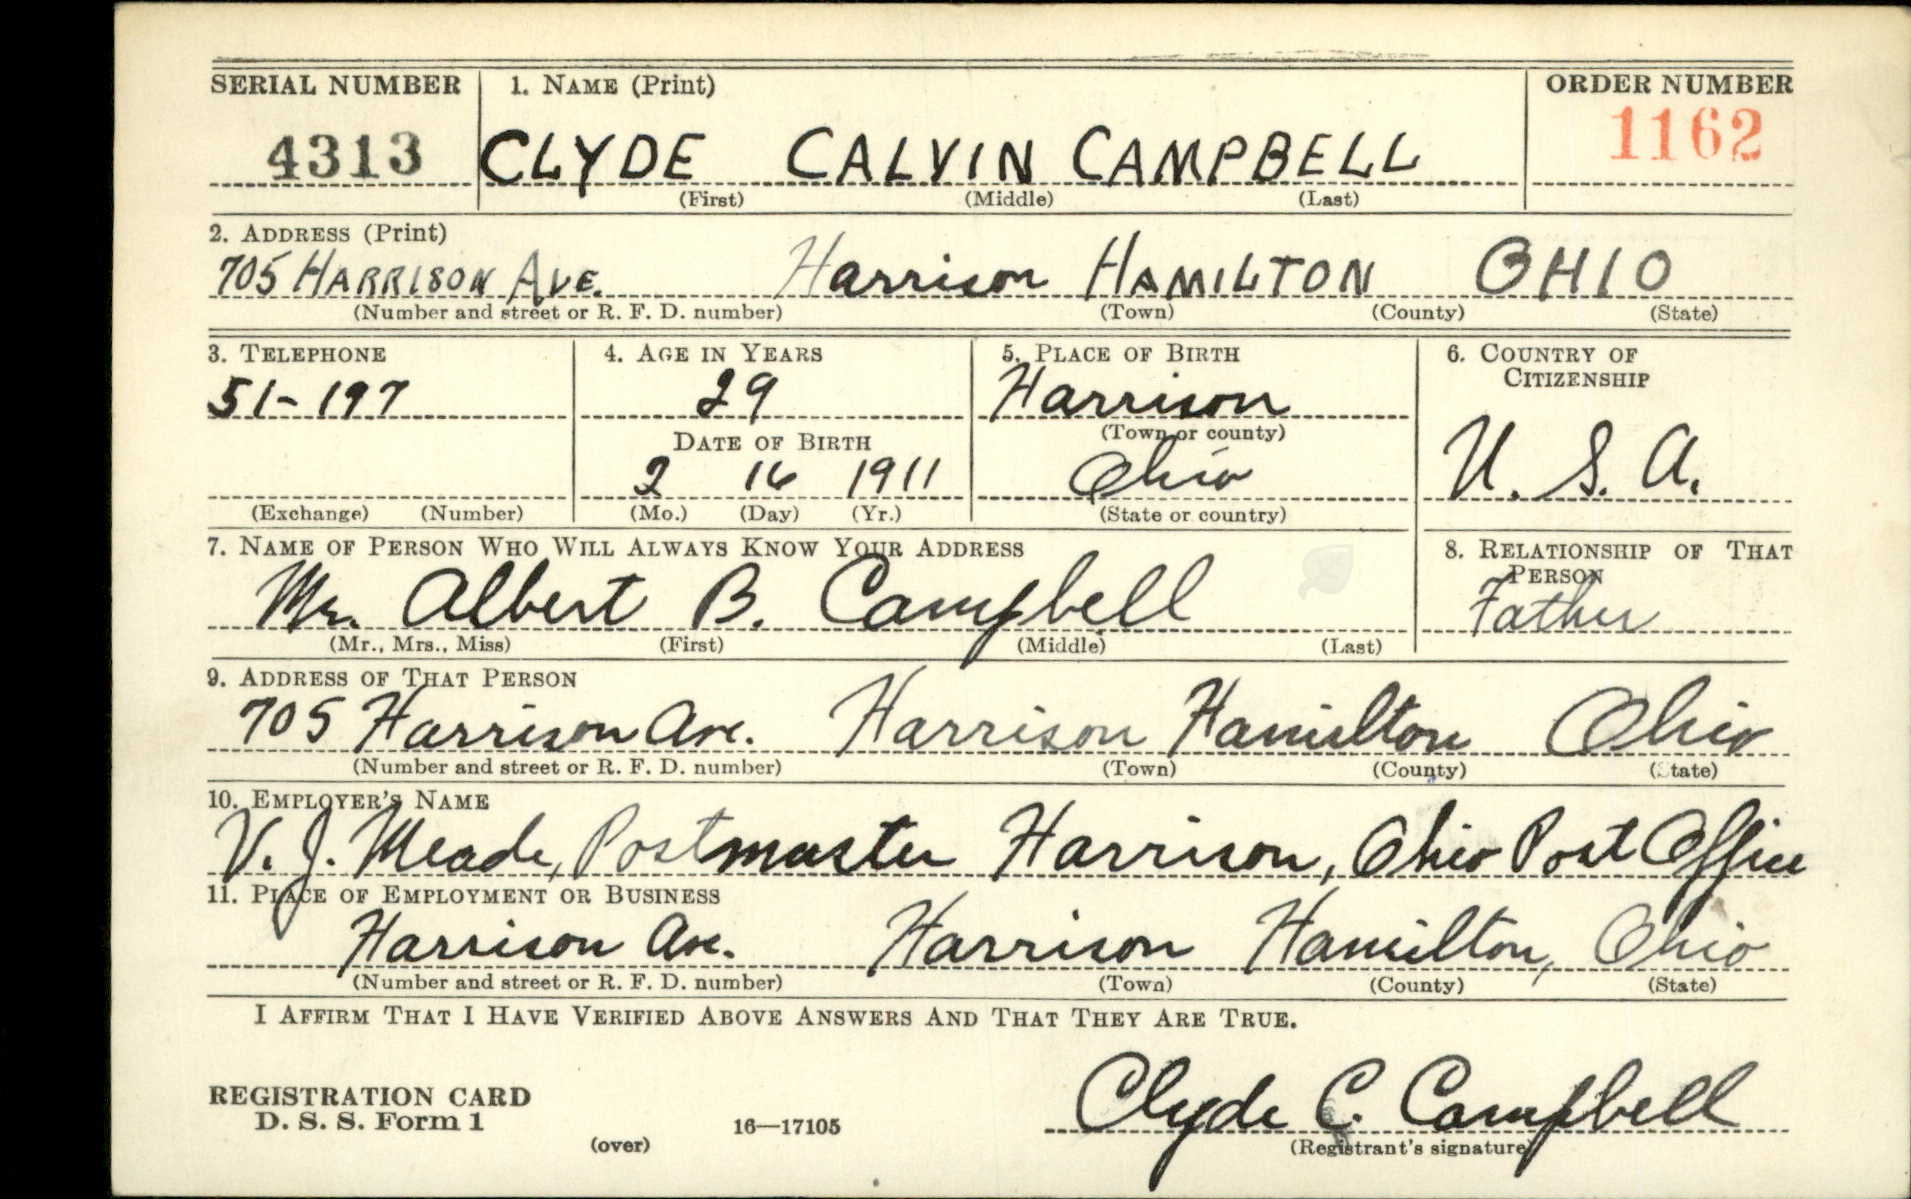 SERIAL NUMBER 1. NAME (Print) ORDER NUMBER
4313 CLYDE CALVIN CAMPBELL 1162
(First) (Middle) (Last)
2. ADDRESS (Print)
705 HARRISON AVE. Harrison HAMILTON OHIO
(Number and street or R. F. D. number) (Town) (County) (State)
3. TELEPHONE 4. AGE IN YEARS 5. PLACE OF BIRTH 6. COUNTRY OF
CITIZENSHIP
51-197 29 Harrison
(Town or county)
DATE OF BIRTH
2 16 1911 Ohio U. S. A.
(Exchange) (Number) (Mo.) (Day) (Yr.) (State or country)
7. NAME OF PERSON WHO WILL ALWAYS KNOW YOUR ADDRESS 8. RELATIONSHIP OF THAT
PERSON
Mr. Albert B. Campbell Father
(Mr., Mrs., Miss) (First) (Middle) (Last)
9. ADDRESS OF THAT PERSON
705 Harrison Ave. Harrison Hamilton Ohio
(Number and street or R. F. D. number) (Town) (County) (State)
10. EMPLOYER'S NAME
V. J. Meade, Postmaster Harrison, Ohio Post Office
11. PLACE OF EMPLOYMENT OR BUSINESS
Harrison Ave. Harrison Hamilton, Ohio
(Number and street or R. F. D. number) (Town) (County) (State)
I AFFIRM THAT I HAVE VERIFIED ABOVE ANSWERS AND THAT THEY ARE TRUE.
REGISTRATION CARD
D. S. S. Form 1 Clyde C. Campbell
(over) 16—17105 (Registrant's signature)